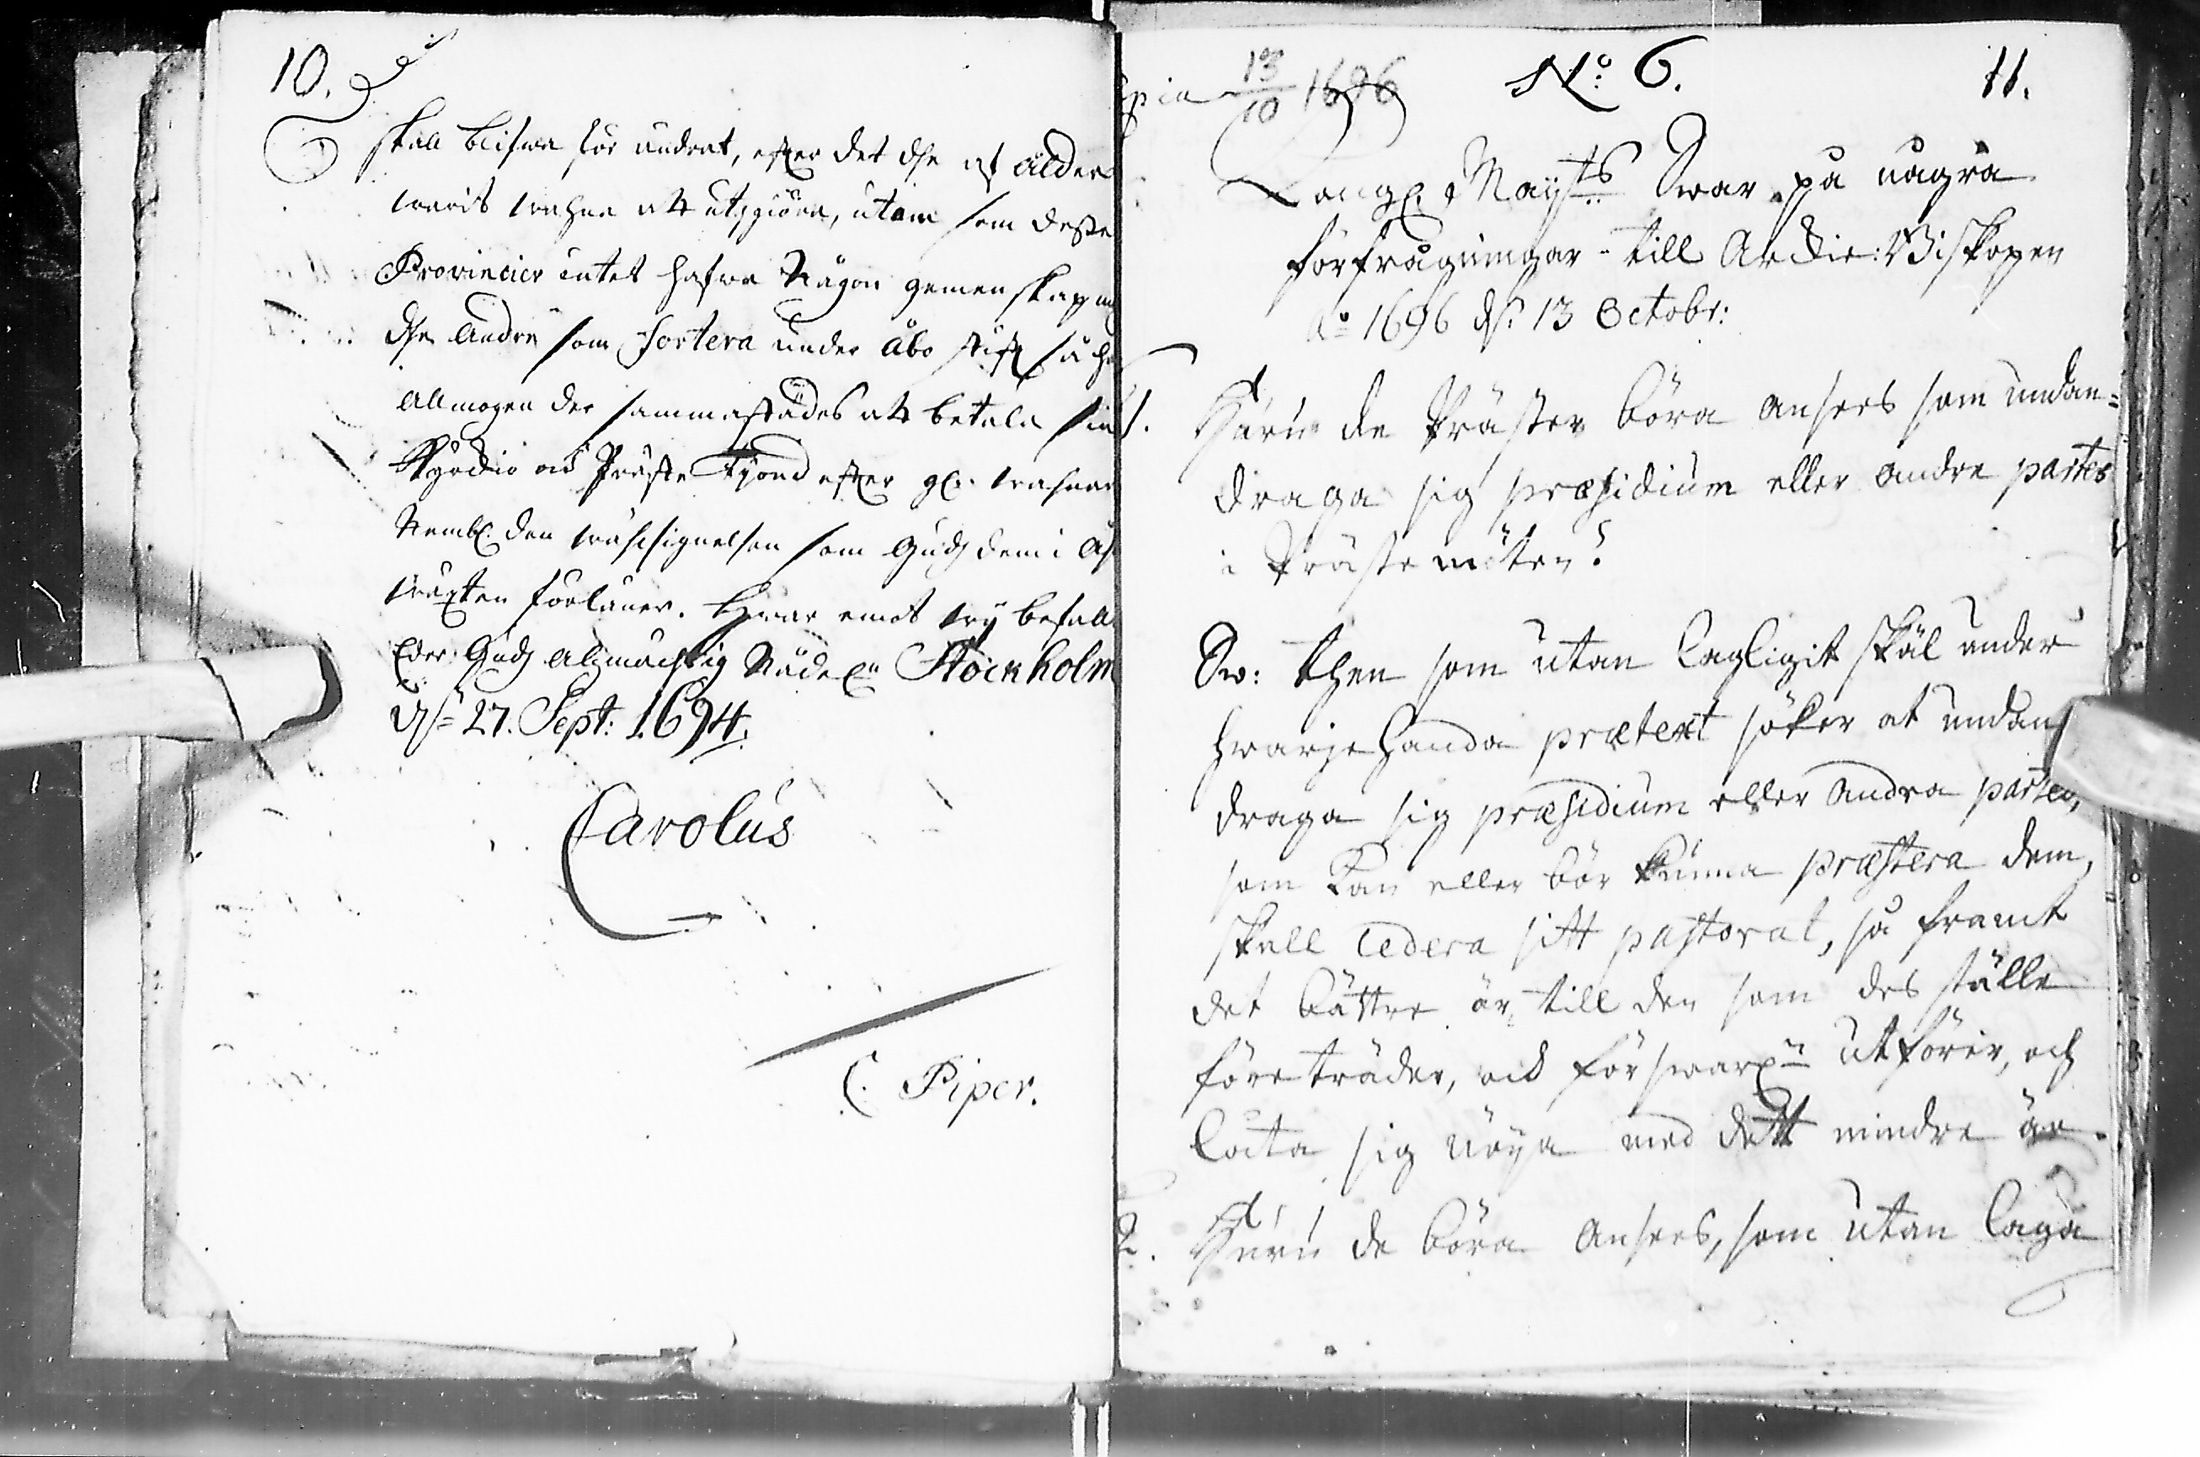 10.
skall blifwa för ändrat, efter det de af ålder
warit wahne att utgiöra, utan som desse
Provincier intet hafwa Någon gemenskap med
de andre som Sortera under Åbo stift så
Allmogen der sammastädes att betala sin
och Präste Tijond efter
Nembl. den wälsignelsen som Gud dem i Åhr
wäxten förlänar. Hwar emot wij befalle
Eder Gud Alzmächtig Nådel. Stockholm
d. 27. Sept: 1694.
Carolus
C. Piper.
Copia 13/10 1696
No: 6.
11.
Kongl. Mayts Swar på några
förfrågningar till Ärchie: Biskopen
Ao 1696 d. 13 Octobr:
1. Huru de Präster böra ansees som undan=
draga sig præsidium eller andre partes
i Prästemöten?
Sw: then som utan lagligit skäl under
hwarjehanda prætext söker at undan
draga sig præsidium eller andra partes,
som kan eller bör kunna præstera dem,
skall cedera sitt pastorat, så framt
det bättre är, till den som des ställe
företräder, och förswarl:n utförer, och
låta sig nöya med dett mindre är.
2. Huru de böra ansees, som utan laga